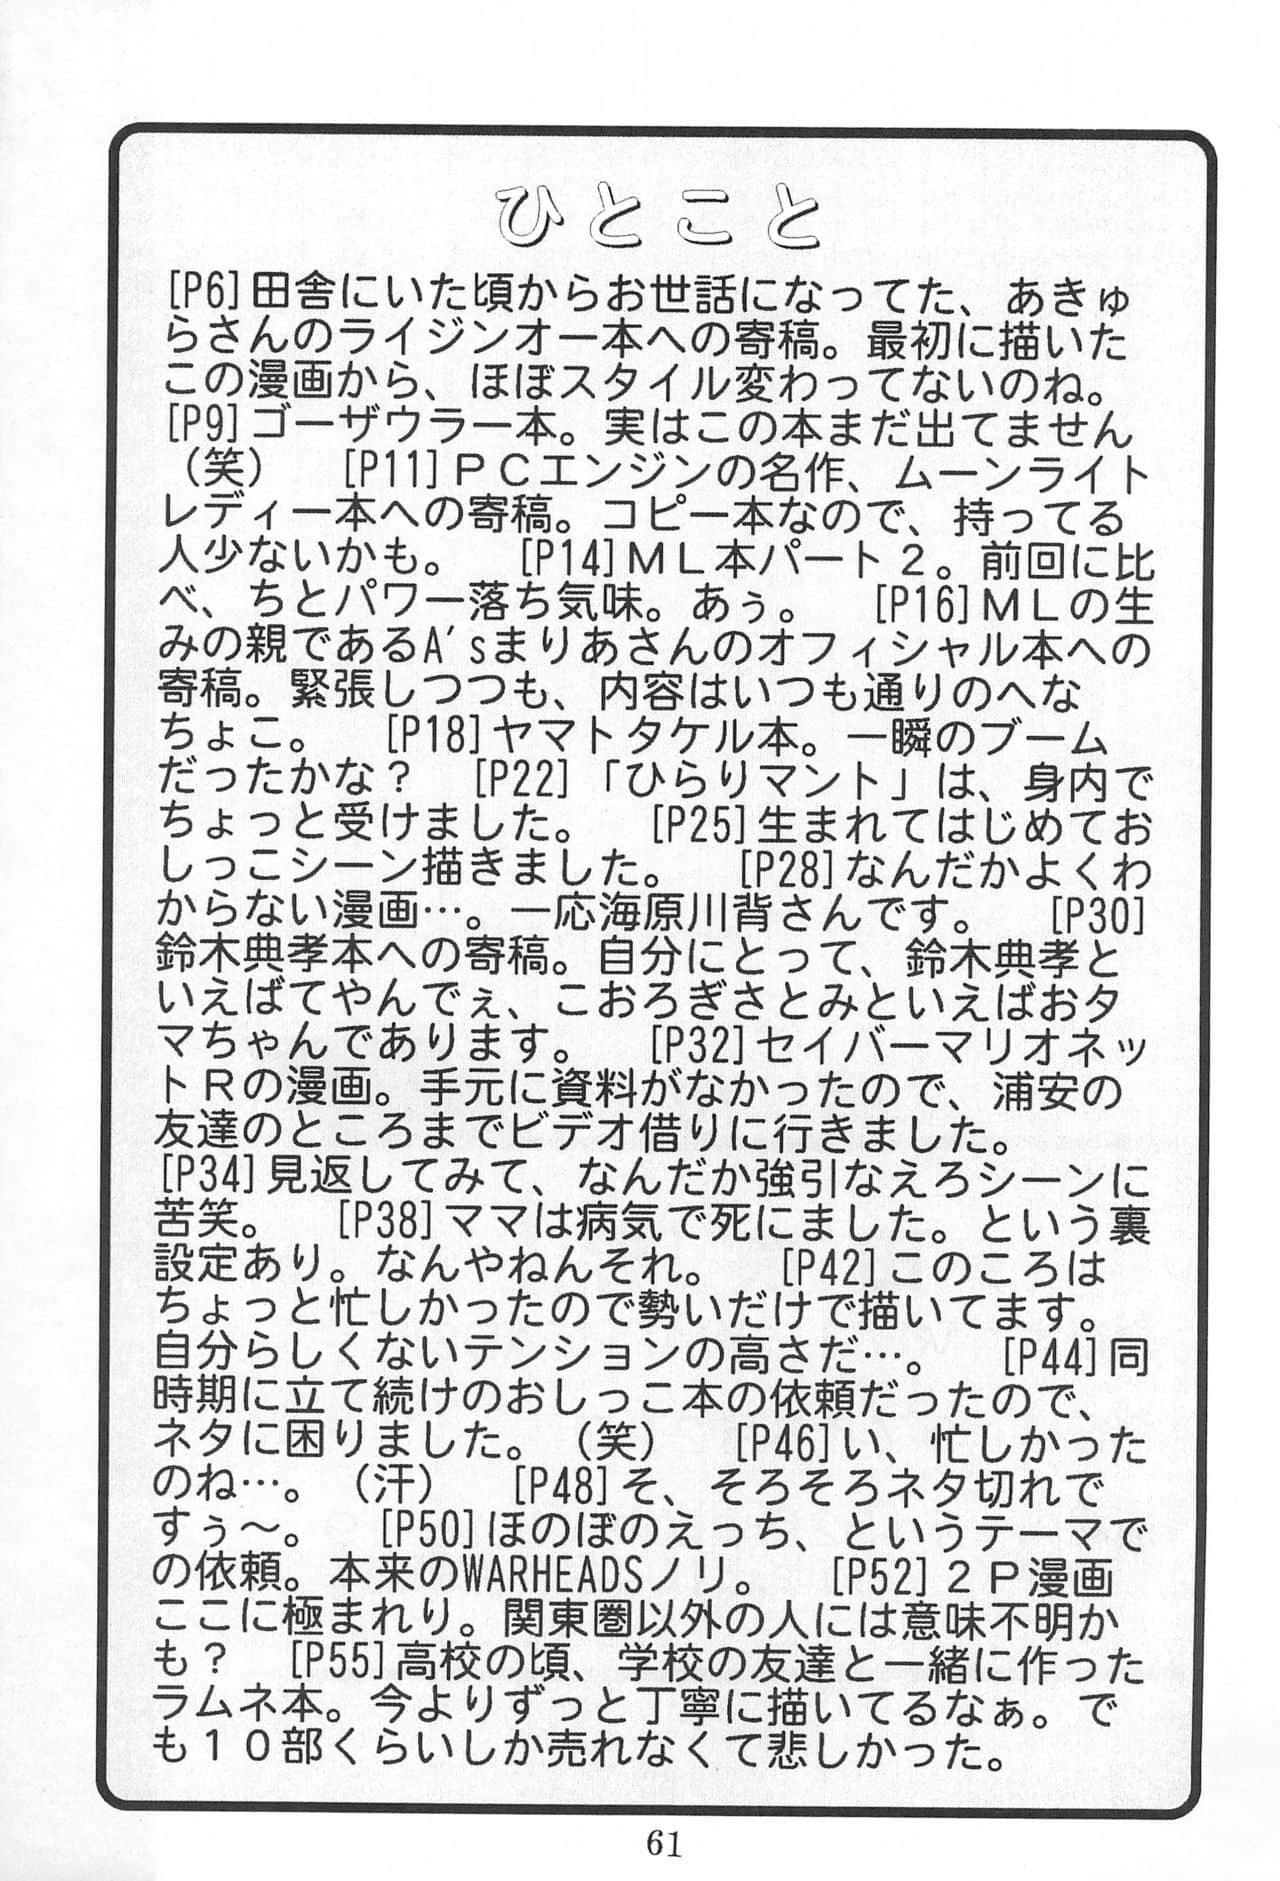 ひとこと
[P6]田舎にいた頃からお世話になってた、あきゅ
らさんのライジンオー本への寄稿。最初に描いた
この漫画から、ほぼスタイル変わってないのね。
[P9]ゴーザウラー本。実はこの本まだ出てません
（笑）　[P11]ＰＣエンジンの名作、ムーンライト
レディー本への寄稿。コピー本なので、持ってる
人少ないかも。　[P14]ＭＬ本パート２。前回に比
べ、ちとパワー落ち気味。あぅ。　[P16]ＭＬの生
みの親であるA'sまりあさんのオフィシャル本への
寄稿。緊張しつつも、内容はいつも通りのへな
ちょこ。　[P18]ヤマトタケル本。一瞬のブーム
だったかな？　[P22]「ひらりマント」は、身内で
ちょっと受けました。　[P25]生まれてはじめてお
しっこシーン描きました。　[P28]なんだかよくわ
からない漫画…。一応海原川背さんです。　[P30]
鈴木典孝本への寄稿。自分にとって、鈴木典孝と
いえばてやんでぇ、こおろぎさとみといえばおタ
マちゃんであります。　[P32]セイバーマリオネッ
トＲの漫画。手元に資料がなかったので、浦安の
友達のところまでビデオ借りに行きました。
[P34]見返してみて、なんだか強引なえろシーンに
苦笑。　[P38]ママは病気で死にました。という裏
設定あり。なんやねんそれ。　[P42]このころは
ちょっと忙しかったので勢いだけで描いてます。
自分らしくないテンションの高さだ…。　[P44]同
時期に立て続けのおしっこ本の依頼だったので、
ネタに困りました。（笑）　[P46]い、忙しかった
のね…。（汗）　[P48]そ、そろそろネタ切れで
すぅ～。　[P50]ほのぼのえっち、というテーマで
の依頼。本来のWARHEADSノリ。　[P52]２Ｐ漫画
ここに極まれり。関東圏以外の人には意味不明か
も？　[P55]高校の頃、学校の友達と一緒に作った
ラムネ本。今よりずっと丁寧に描いてるなぁ。で
も１０部くらいしか売れなくて悲しかった。
61